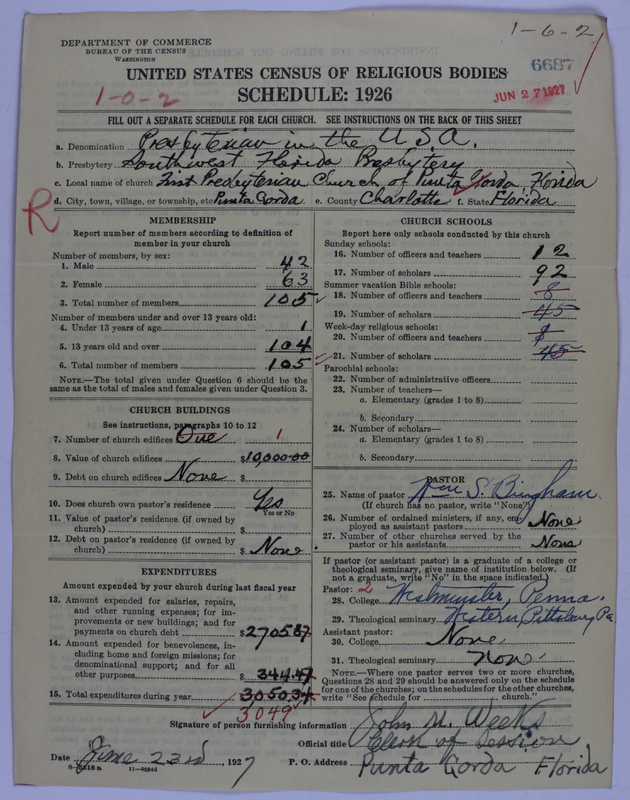 1-6-2
DEPARTMENT OF COMMERCE
BUREAU OF THE CENSUS
WASHINGTON
6687
UNITED STATES CENSUS OF RELIGIOUS BODIES
1-0-2
SCHEDULE: 1926
JUN 27 1927
FILL OUT A SEPARATE SCHEDULE FOR EACH CHURCH. SEE INSTRUCTIONS ON THE BACK OF THIS SHEET
a. Denomination Presbyterian in the U.S.A.
b. Presbytery Southwest Florida Presbytery
c. Local name of church First Presbyterian Church of Punta Gorda, Florida
d. City, town, village, or township, etc Punta Gorda e. County Charlotte f. State Florida
R
MEMBERSHIP
Report number of members according to definition of
member in your church
Number of members, by sex:
1. Male 42
2. Female 63
3. Total number of members 105
Number of members under and over 13 years old:
4. Under 13 years of age 1
5. 13 years old and over 104
6. Total number of members 105
NOTE.—The total given under Question 6 should be the
same as the total of males and females given under Question 3.
CHURCH BUILDINGS
See instructions, paragraphs 10 to 12
7. Number of church edifices One 1
8. Value of church edifices $10,000.00
9. Debt on church edifices None $
10. Does church own pastor's residence Yes
Yes or No
11. Value of pastor's residence (if owned by
church) $
12. Debt on pastor's residence (if owned by
church) $ None
EXPENDITURES
Amount expended by your church during last fiscal year
13. Amount expended for salaries, repairs,
and other running expenses; for im-
provements or new buildings; and for
payments on church debt $2705.87
14. Amount expended for benevolences, in-
cluding home and foreign missions; for
denominational support; and for all
other purposes $344.47
15. Total expenditures during year $3050.34
3049
CHURCH SCHOOLS
Report here only schools conducted by this church
Sunday schools:
16. Number of officers and teachers 12
17. Number of scholars 92
Summer vacation Bible schools:
18. Number of officers and teachers 8
19. Number of scholars 45
Week-day religious schools:
20. Number of officers and teachers 8
21. Number of scholars 45
Parochial schools:
22. Number of administrative officers
23. Number of teachers—
a. Elementary (grades 1 to 8)
b. Secondary
24. Number of scholars—
a. Elementary (grades 1 to 8)
b. Secondary
PASTOR
25. Name of pastor Wm S. Bingham
(If church has no pastor, write "None")
26. Number of ordained ministers, if any, em-
ployed as assistant pastors None
27. Number of other churches served by the
pastor or his assistants None
If pastor (or assistant pastor) is a graduate of a college or
theological seminary, give name of institution below. (If
not a graduate, write "No" in the space indicated)
Pastor: 2
28. College Westminster, Penna.
29. Theological seminary Western Pittsburg Pa
Assistant pastor:
30. College None
31. Theological seminary None
NOTE.—Where one pastor serves two or more churches,
Questions 28 and 29 should be answered only on the schedule
for one of the churches; on the schedules for the other churches,
write "See schedule for church."
Signature of person furnishing information John M. Weeks
Official title Clerk of Session
Date June 23rd, 1927 P. O. Address Punta Gorda Florida